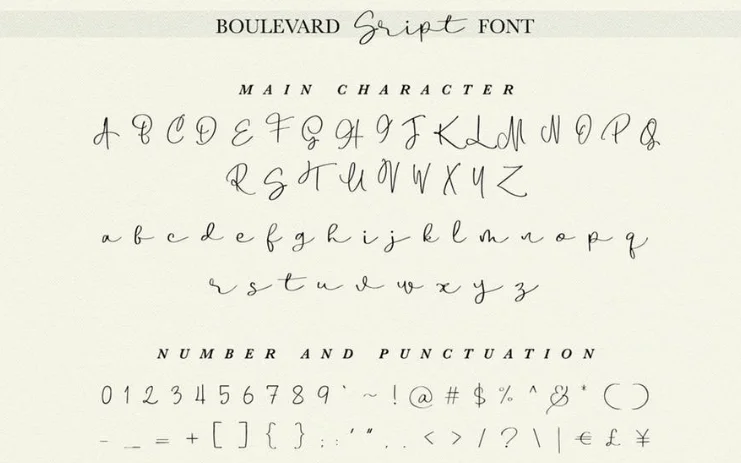 BOULEVARD Script FONT
MAIN CHARACTER
A B C D E F G H I J K L M N O P Q
R S T U V W X Y Z
a b c d e f g h i j k l m n o p q
r s t u v w x y z
NUMBER AND PUNCTUATION
0 1 2 3 4 5 6 7 8 9 ` ~ ! @ # $ % ^ & * ( )
- _ = + [ ] { } ; : ' " , . < > / ? \ | € £ ¥